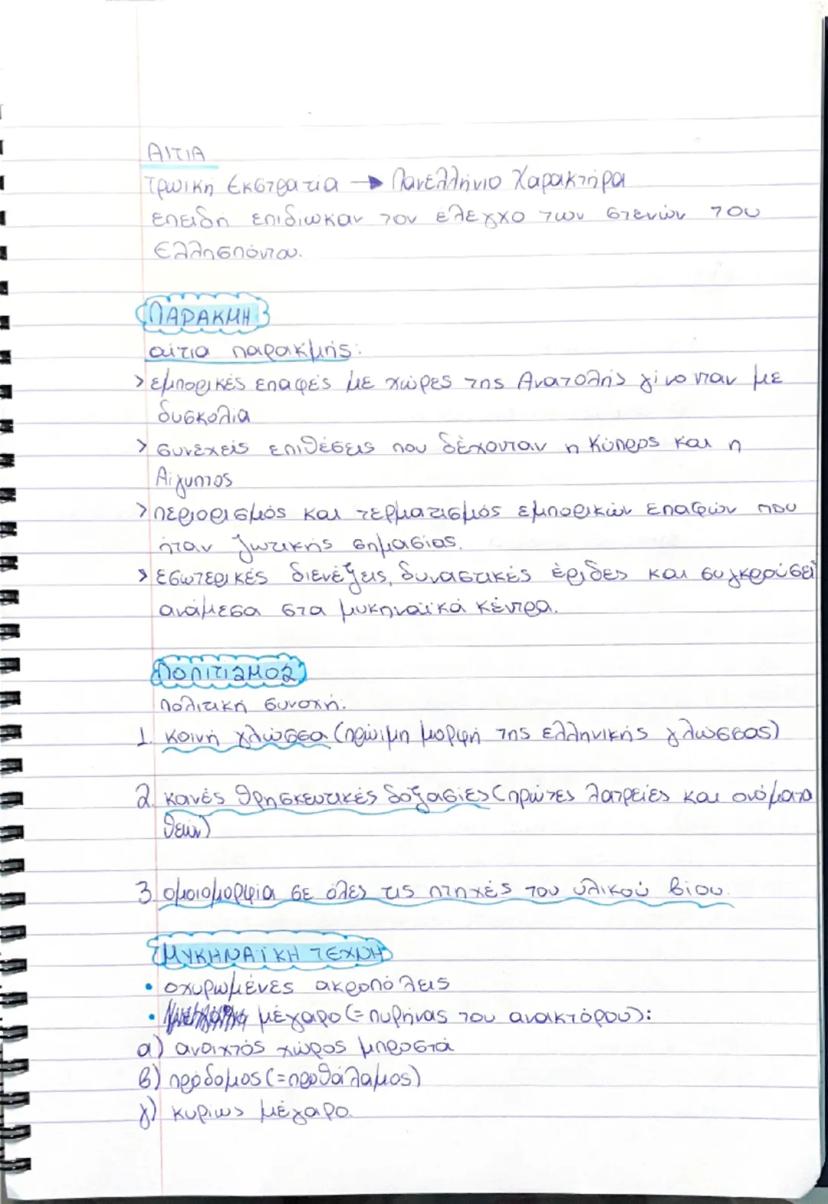 ΑΙΤΙΑ
Τρωική Εκστρατία → Πανελλήνιο Χαρακτήρα
επειδη επιδιωκαν τον έλεγχο των στενών του
Ελλησπόντου.
ΠΑΡΑΚΜΗ
αίτια παρακμής:
> εμπορικές επαφές με χώρες της Ανατολής γίνονταν με
δυσκολία
> συνεχείς επιθέσεις που δέχονταν η Κύπρος και η
Αίγυπτος
> περιορισμός και τερματισμός εμπορικών επαφών που
ήταν ζωτικής σημασίας.
> εσωτερικές διενέξεις, δυναστικές έριδες και συγκρούσει
ανάμεσα στα μυκηναϊκά κέντρα.
ΠΟΛΙΤΙΣΜΟΣ
πολιτική συνοχή:
1. κοινή γλώσσα (πρώιμη μορφή της ελληνικής γλώσσας)
2. κανές θρησκευτικές δοξασίες (πρώτες λατρείες και ονόματα
θεών)
3. ομοιομορφία σε όλες τις πτηχές του υλικού βίου.
ΜΥΚΗΝΑΪΚΗ ΤΕΧΝΗ
• οχυρωμένες ακροπόλεις
• μέγαρο (= πυρήνας του ανακτόρου):
α) ανοιχτός χώρος μπροστά
β) πρόδομος (= προθάλαμος)
γ) κυριως μέγαρο.